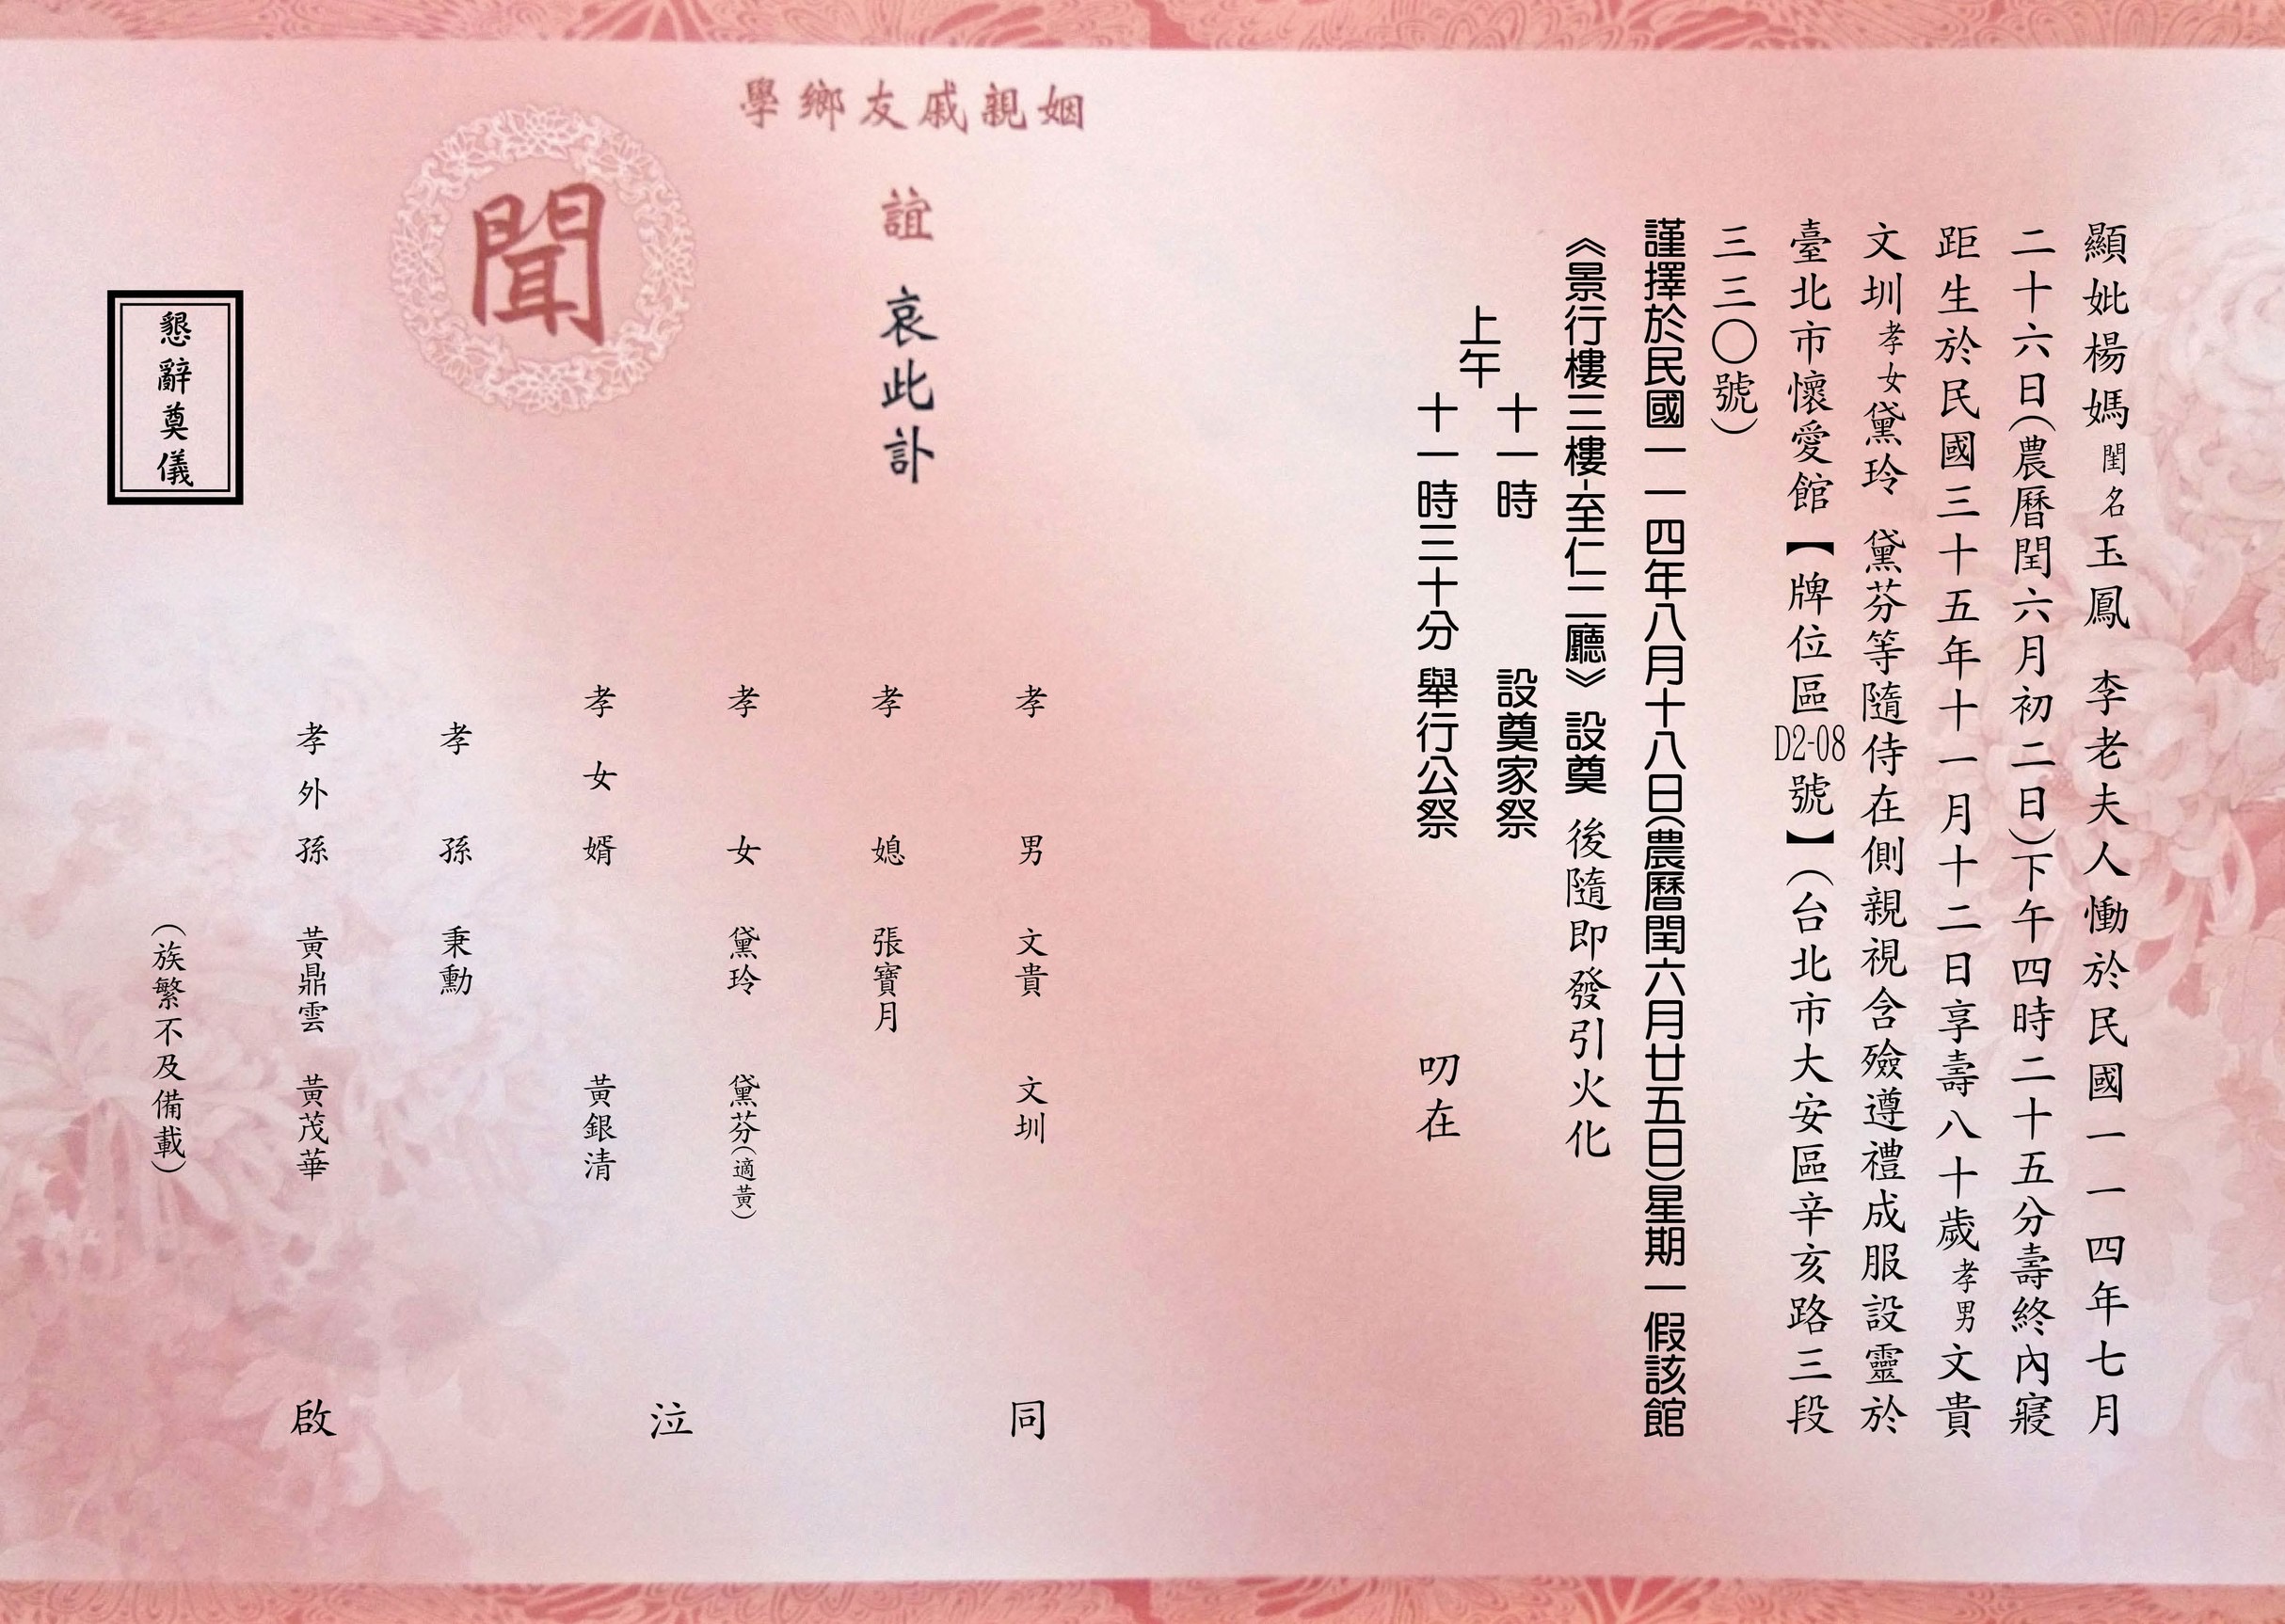 顯妣楊媽閨名玉鳳 李老夫人慟於民國一一四年七月
二十六日(農曆閏六月初二日)下午四時二十五分壽終內寢
距生於民國三十五年十一月十二日享壽八十歲孝男文貴
文圳孝女黛玲 黛芬等隨侍在側親視含殮遵禮成服設靈於
臺北市懷愛館【牌位區D2-08號】(台北市大安區辛亥路三段
三三〇號)
謹擇於民國一一四年八月十八日(農曆閏六月廿五日)星期一假該館
《景行樓三樓-至仁二廳》設奠 後隨即發引火化
上午
十一時 設奠家祭
十一時三十分 舉行公祭
叨在
姻親戚友鄉學
誼 哀此訃
聞
孝男 文貴 文圳
孝媳 張寶月
孝女 黛玲 黛芬(適黃)
孝女婿 黃銀清
孝孫 秉勳
孝外孫 黃鼎雲 黃茂華
(族繁不及備載)
同 泣 啟
懇辭奠儀